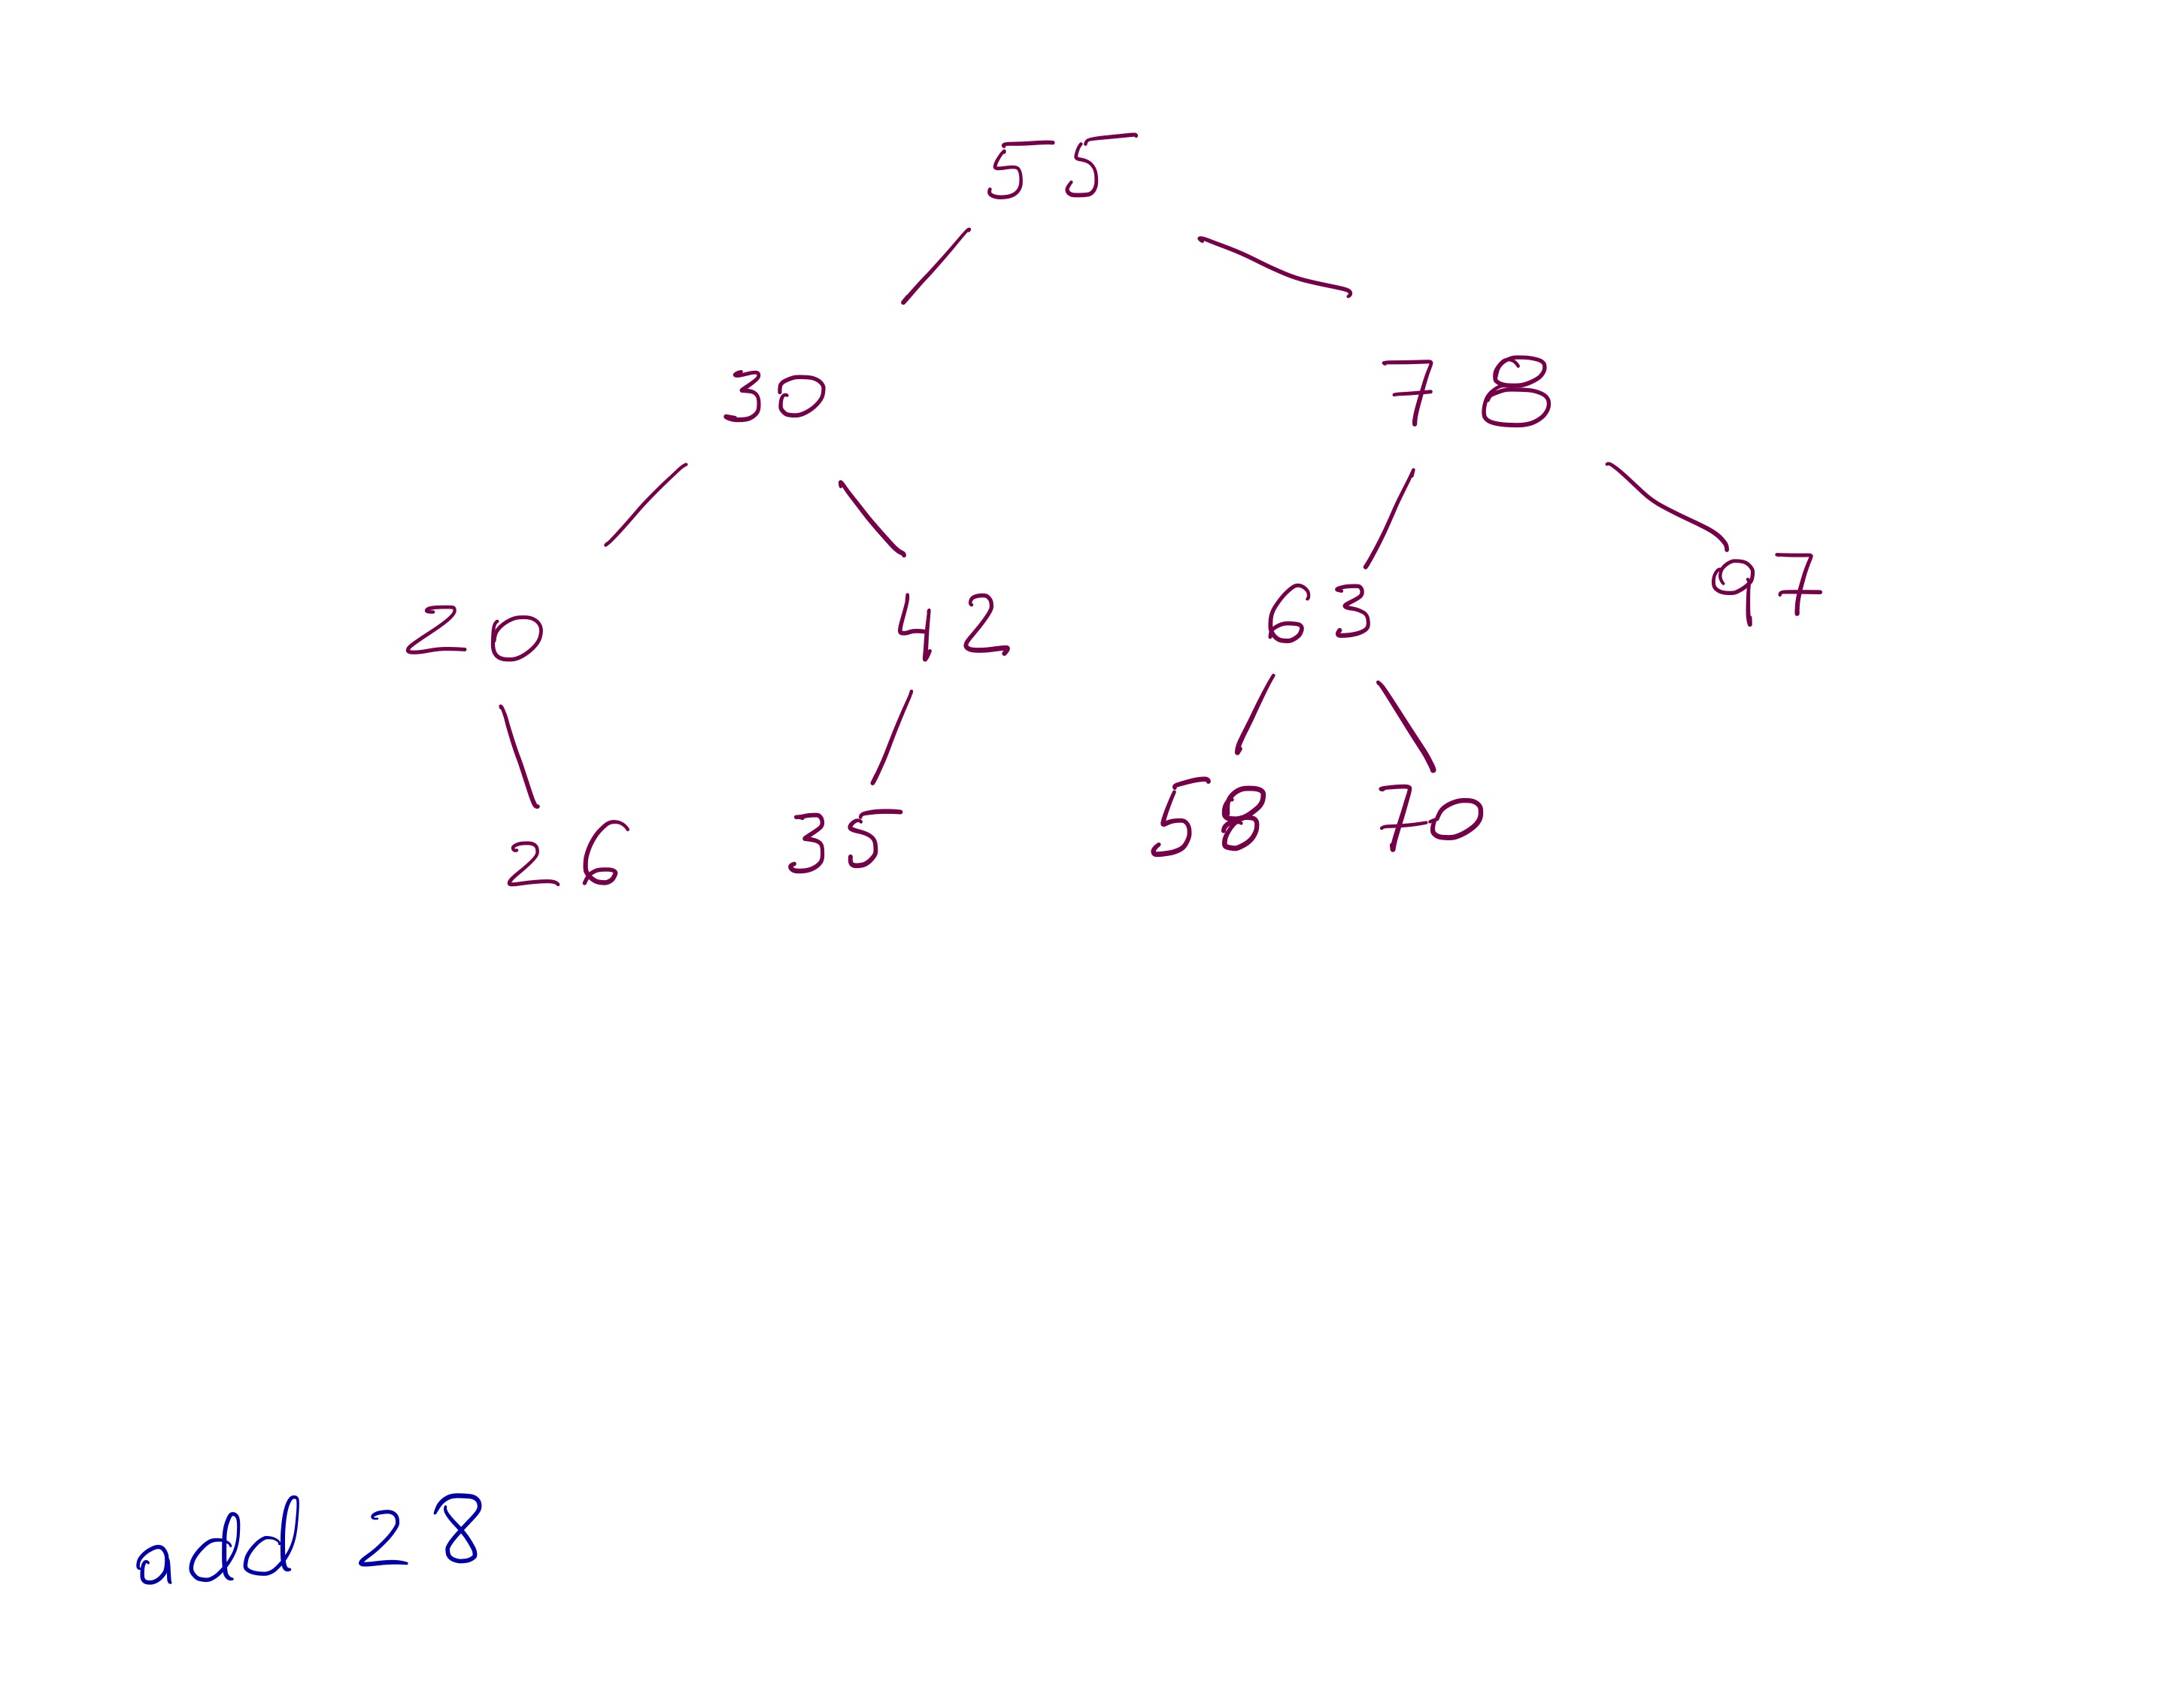 55
30 78
20 42 63 97
26 35 58 70
add 28